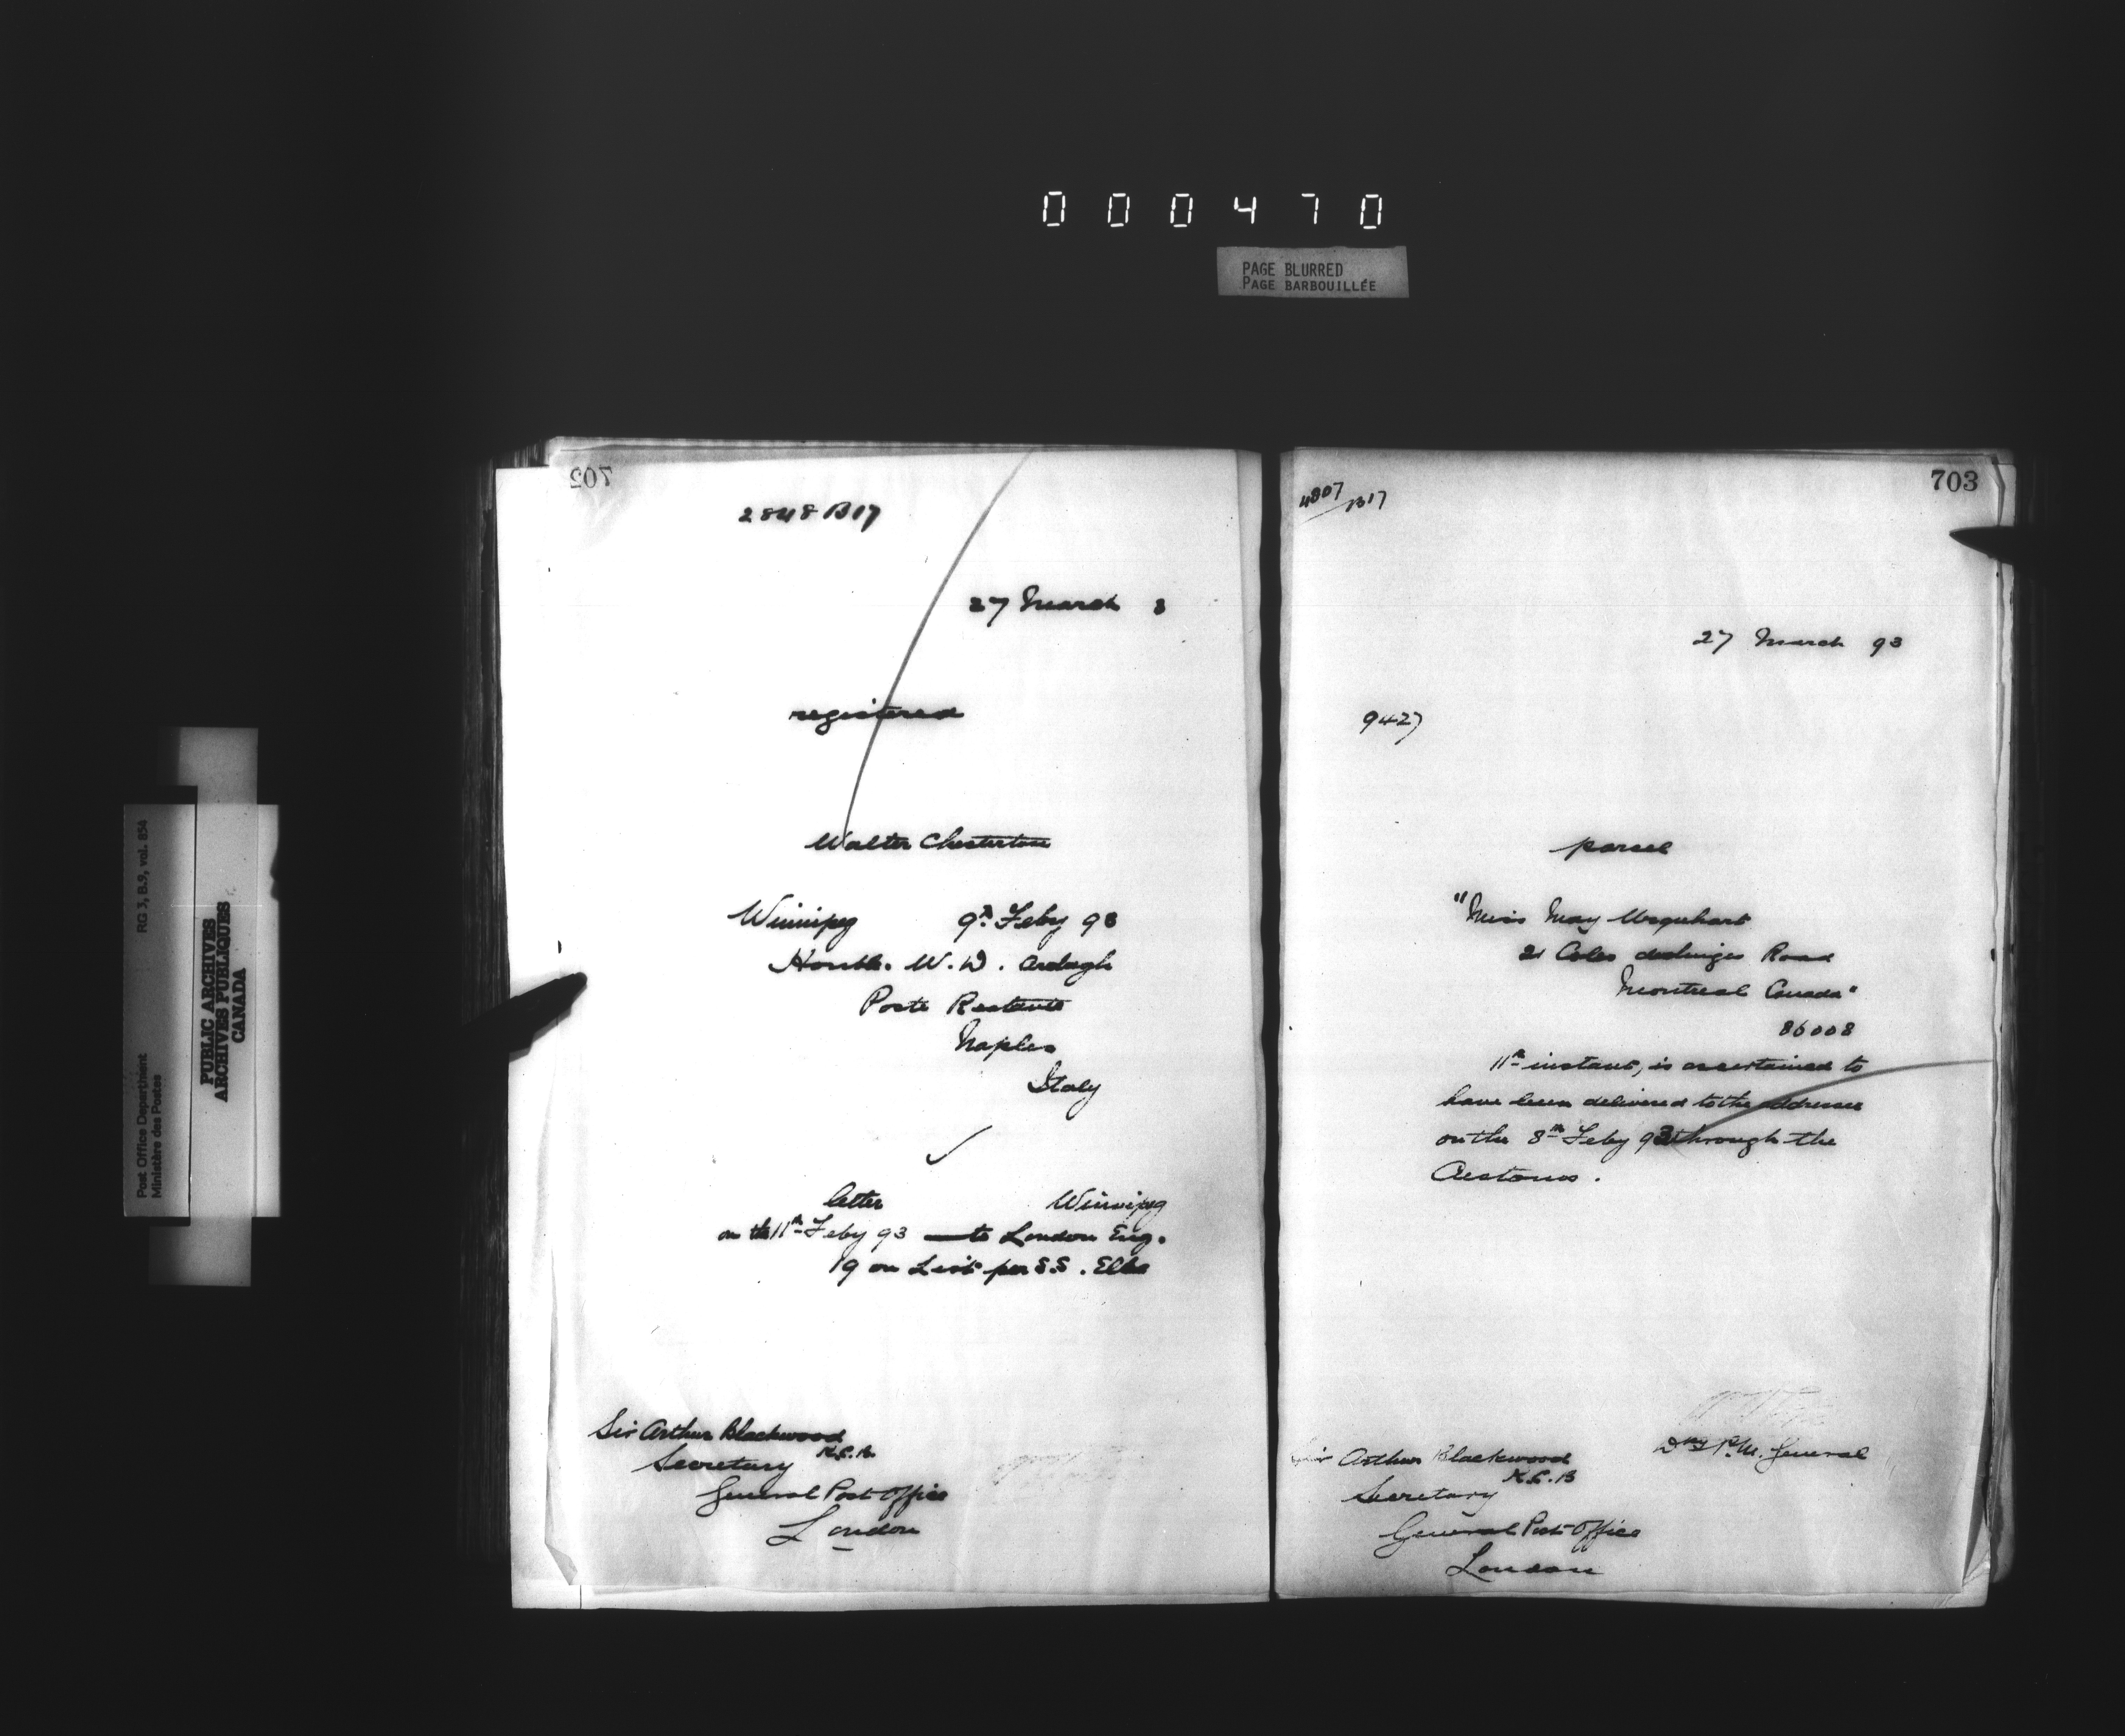 000470
PAGE BLURRED
PAGE BARBOUILLÉE
RG 3, B.9, vol. 854
Post Office Department
Ministère des Postes
PUBLIC ARCHIVES
ARCHIVES PUBLIQUES
CANADA
702
2848 B17
27 March 3
registered
Walter Chesterton
Winnipeg 9th Feby 93
Honble. W. D. Ardagh
Poste Restante
Naples
Italy
letter Winnipeg
on the 11th Feby 93 to London Eng.
19 on List per S.S. Elbe
Sir Arthur Blackwood
K.C.B.
Secretary
General Post Office
London
703
4807/B17
27 March 93
9427
parcel
"Miss May Urquhart
21 Coles Road
Montreal Canada"
86008
11th instant, is ascertained to
have been delivered to the addressee
on the 8th Feby 93 through the
Customs.
Sir Arthur Blackwood
K.C.B
Secretary
General Post Office
London
Dy P.M. General